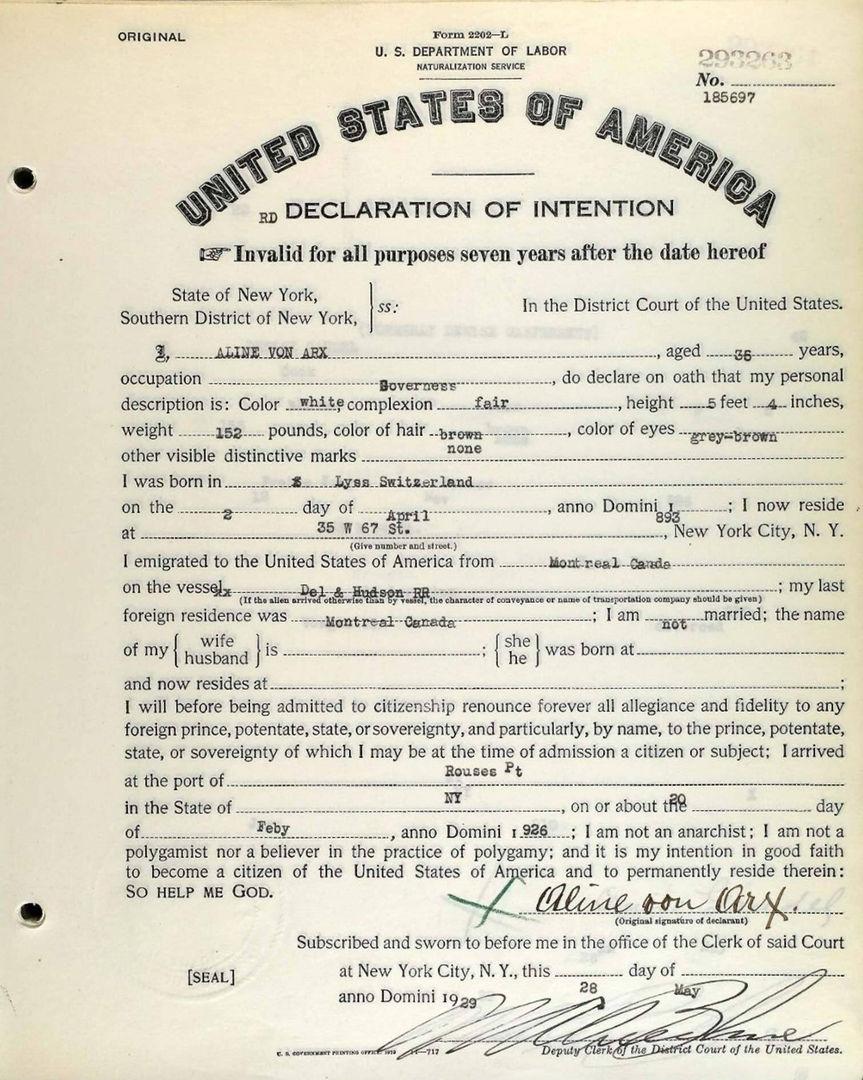 ORIGINAL
Form 2202—L
U. S. DEPARTMENT OF LABOR
NATURALIZATION SERVICE
293263
No.
185697
UNITED STATES OF AMERICA
RD DECLARATION OF INTENTION
☞ Invalid for all purposes seven years after the date hereof
State of New York,
Southern District of New York,
ss:
In the District Court of the United States.
I, ALINE VON ARX, aged 36 years,
occupation Governess, do declare on oath that my personal
description is: Color white, complexion fair, height 5 feet 4 inches,
weight 152 pounds, color of hair brown, color of eyes grey-brown
other visible distinctive marks none
I was born in Lyss Switzerland
on the 2 day of April, anno Domini 1893; I now reside
at 35 W 67 St., New York City, N. Y.
(Give number and street.)
I emigrated to the United States of America from Montreal Canda
on the vessel Del & Hudson RR; my last
(If the alien arrived otherwise than by vessel, the character of conveyance or name of transportation company should be given)
foreign residence was Montreal Canada; I am not married; the name
of my { wife husband } is ; { she he } was born at
and now resides at ;
I will before being admitted to citizenship renounce forever all allegiance and fidelity to any
foreign prince, potentate, state, or sovereignty, and particularly, by name, to the prince, potentate,
state, or sovereignty of which I may be at the time of admission a citizen or subject; I arrived
at the port of Rouses Pt
in the State of NY, on or about the 20 day
of Feby, anno Domini 1926; I am not an anarchist; I am not a
polygamist nor a believer in the practice of polygamy; and it is my intention in good faith
to become a citizen of the United States of America and to permanently reside therein:
SO HELP ME GOD.
X Aline von Arx.
(Original signature of declarant)
Subscribed and sworn to before me in the office of the Clerk of said Court
[SEAL]
at New York City, N. Y., this 28 day of May
anno Domini 1929
U. S. GOVERNMENT PRINTING OFFICE
Deputy Clerk of the District Court of the United States.